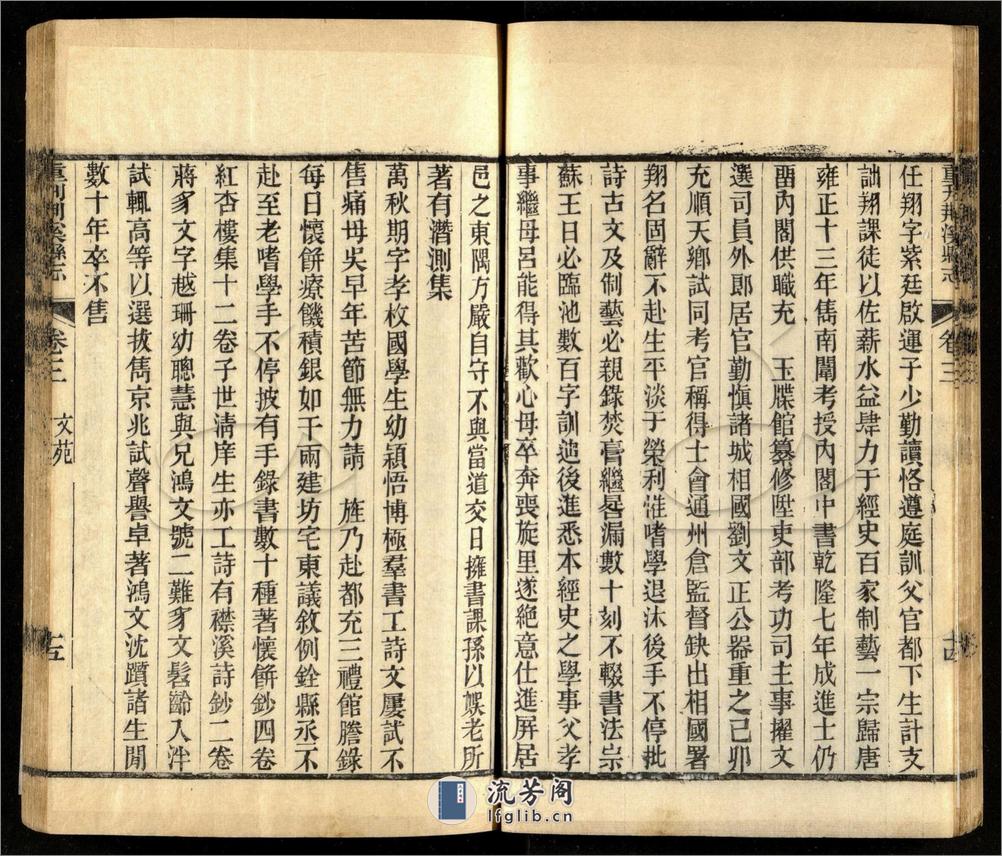 重刋荆溪縣志 卷三
任翔字紫廷啟運子少勤讀恪遵庭訓父官都下生計支
詘翔課徒以佐薪水益肆力于經史百家制藝一宗歸唐
雍正十三年雋南闈考授內閣中書乾隆七年成進士仍
畱內閣供職充 玉牒館纂修陞吏部考功司主事擢文
選司員外郎居官勤慎諸城相國劉文正公器重之己卯
充順天鄉試同考官稱得士會通州倉監督缺出相國署
翔名固辭不赴生平淡于榮利惟嗜學退沐後手不停批
詩古文及制藝必親錄焚膏繼晷漏數十刻不輟書法宗
蘇王日必臨池數百字訓迪後進悉本經史之學事父孝
事繼母呂能得其歡心母卒奔喪旋里遂絕意仕進屏居
邑之東隅方嚴自守不與當道交日擁書課孫以娛老所
著有潛測集
萬秋期字孝枚國學生幼穎悟博極羣書工詩文屢試不
售痛母吳早年苦節無力請 旌乃赴都充三禮館謄錄
每日懷餅療饑積銀如干兩建坊宅東議敘例銓縣丞不
赴至老嗜學手不停披有手錄書數十種著懷餅鈔四卷
紅杏樓集十二卷子世清庠生亦工詩有襟溪詩鈔二卷
蔣豸文字越珊幼聰慧與兄鴻文號二難豸文髫齡入泮
試輒高等以選拔雋京兆試聲譽卓著鴻文沈躓諸生閒
數十年卒不售
重刋荆溪縣志 卷三 文苑